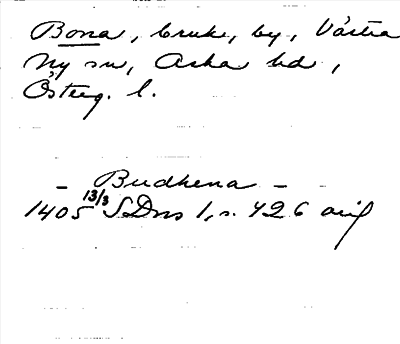 Bona, bruk, by, Västra
Ny sn, Aska hd,
Österg. l.
– Budhena –
1405 13/3 SDns 1, s. 426 avskr